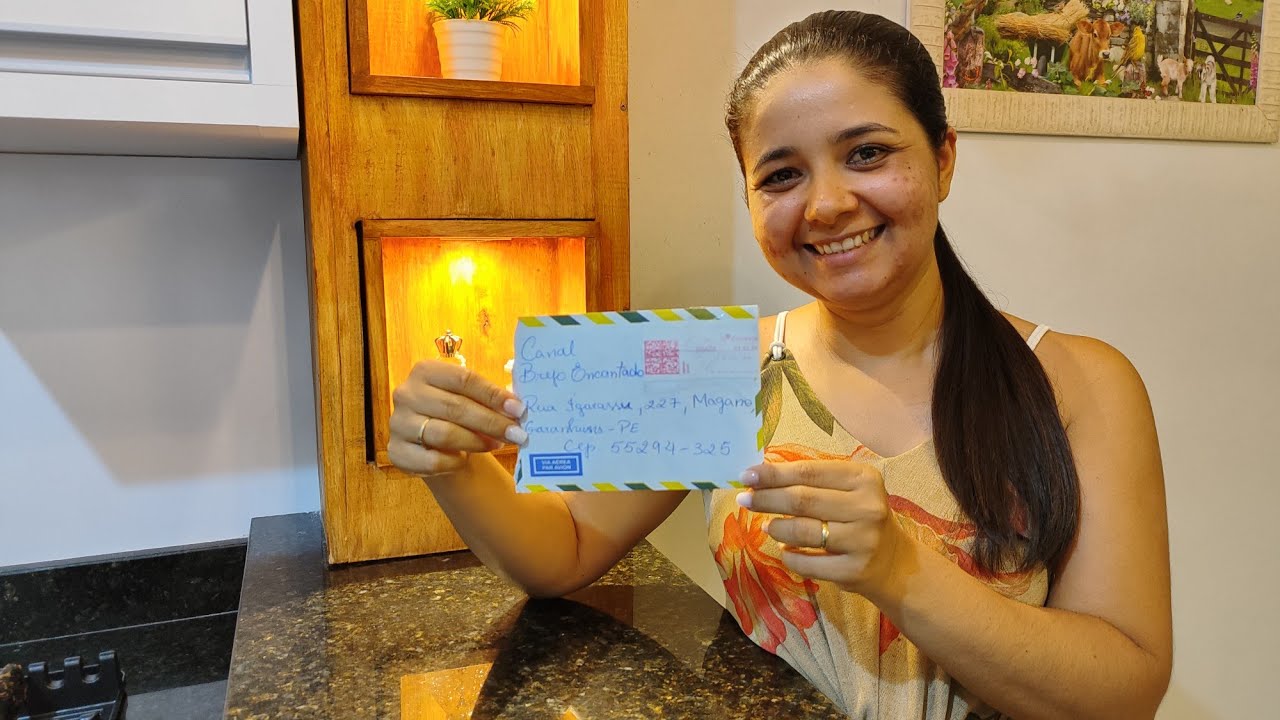 Canal
Brejo Encantado
Rua Igarassu, 227, Magano,
Garanhuns - PE
Cep 55294-325
VIA AÉREA
PAR AVION